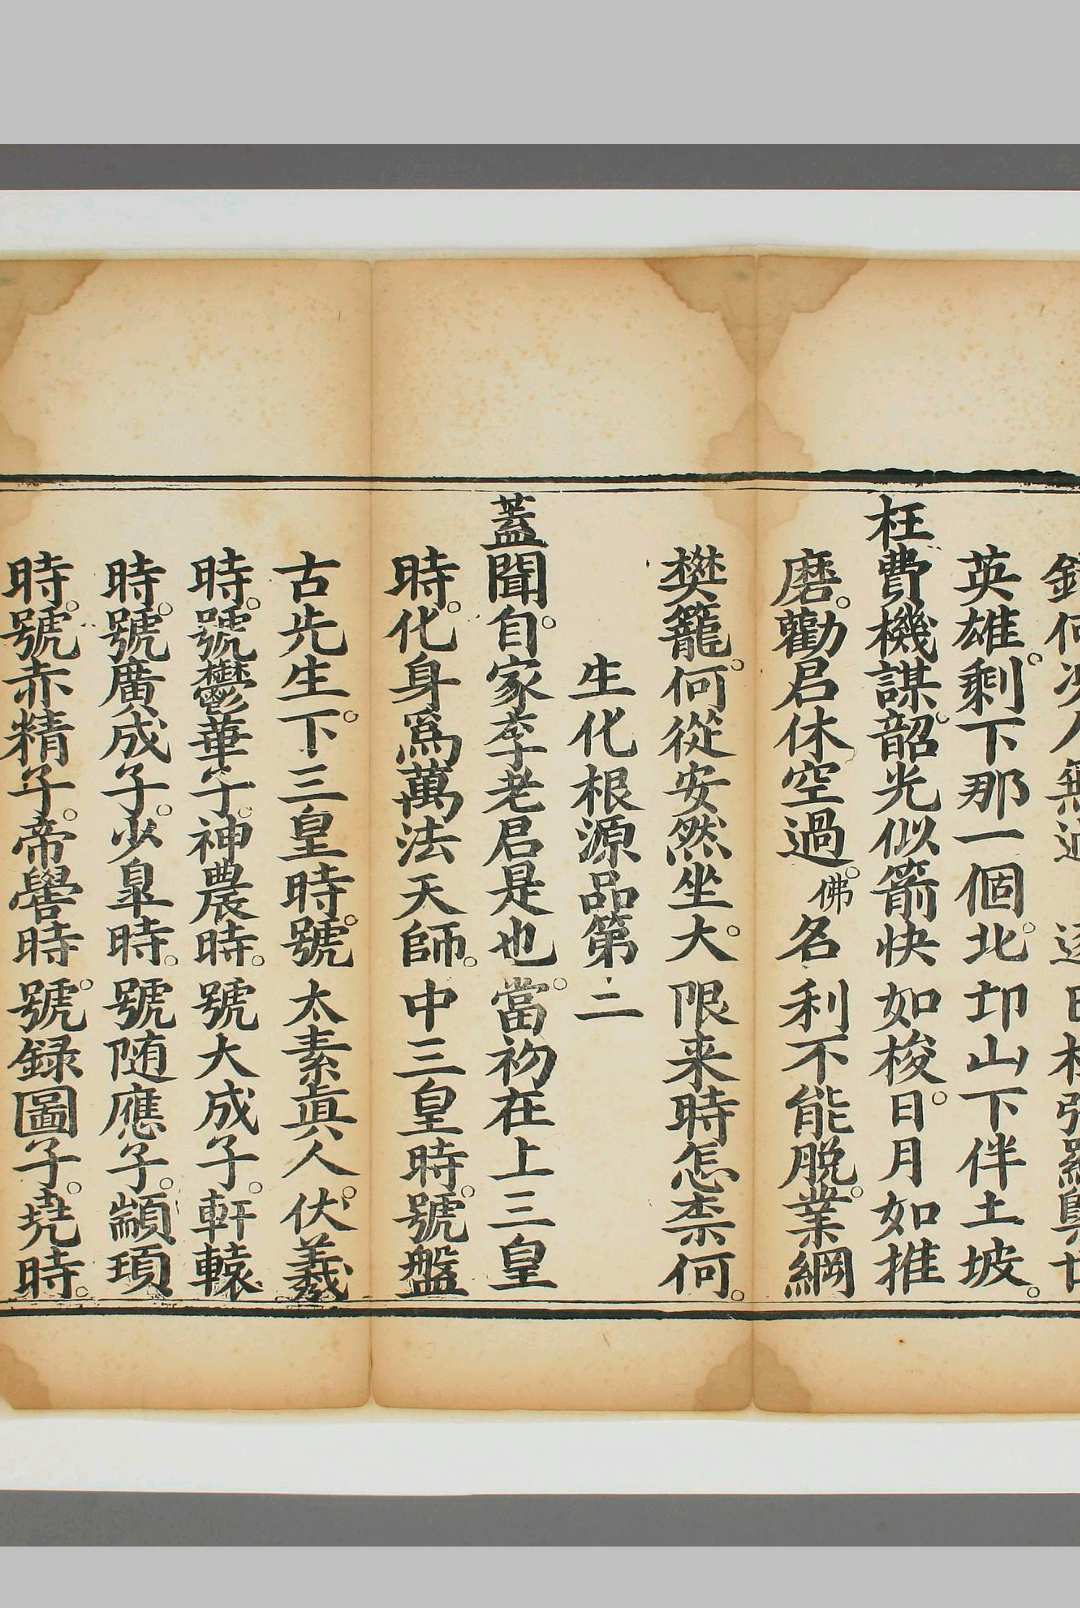 英雄。剩下那一個。北邙山下伴土坡。
枉費機謀。韶光似箭快如梭。日月如推
磨。勸君休空過。佛名利不能脫。業綱
樊籠。何從安然坐。大限来時怎柰何。
生化根源品第二
蓋聞。自家李老君是也。當初在上三皇
時。化身爲萬法天師。中三皇時。號盤
古先生。下三皇時。號太素眞人。伏羲
時。號鬱華子。神農時。號大成子。軒轅
時。號廣成子。少皐時。號随應子。顓頊
時。號赤精子。帝嚳時。號録圖子。堯時。